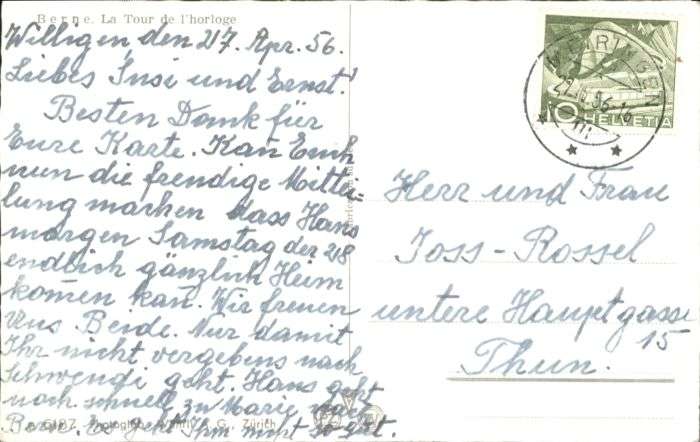 Berne. La Tour de l'horloge
Willigen den 27. Apr. 56.
Liebes Susi und Ernst!
Besten Dank für
Eure Karte. Kan̄ Euch
nun die freudige Mittei-
lung machen dass Hans
morgen Samstag der 28
endlich gänzlich Heim
kom̄en kan̄. Wir freuen
uns Beide. Nur damit
Ihr nicht vergebens nach
Schwendi geht. Hans geht
noch schnell zu Marie nach
Bern. Es geht Ihm nicht so gut.
Photoglob-Wehrli A. G., Zürich
10 HELVETIA
27. 56-16
Herr und Frau
Joss-Rossel
untere Hauptgasse
15
Thun.